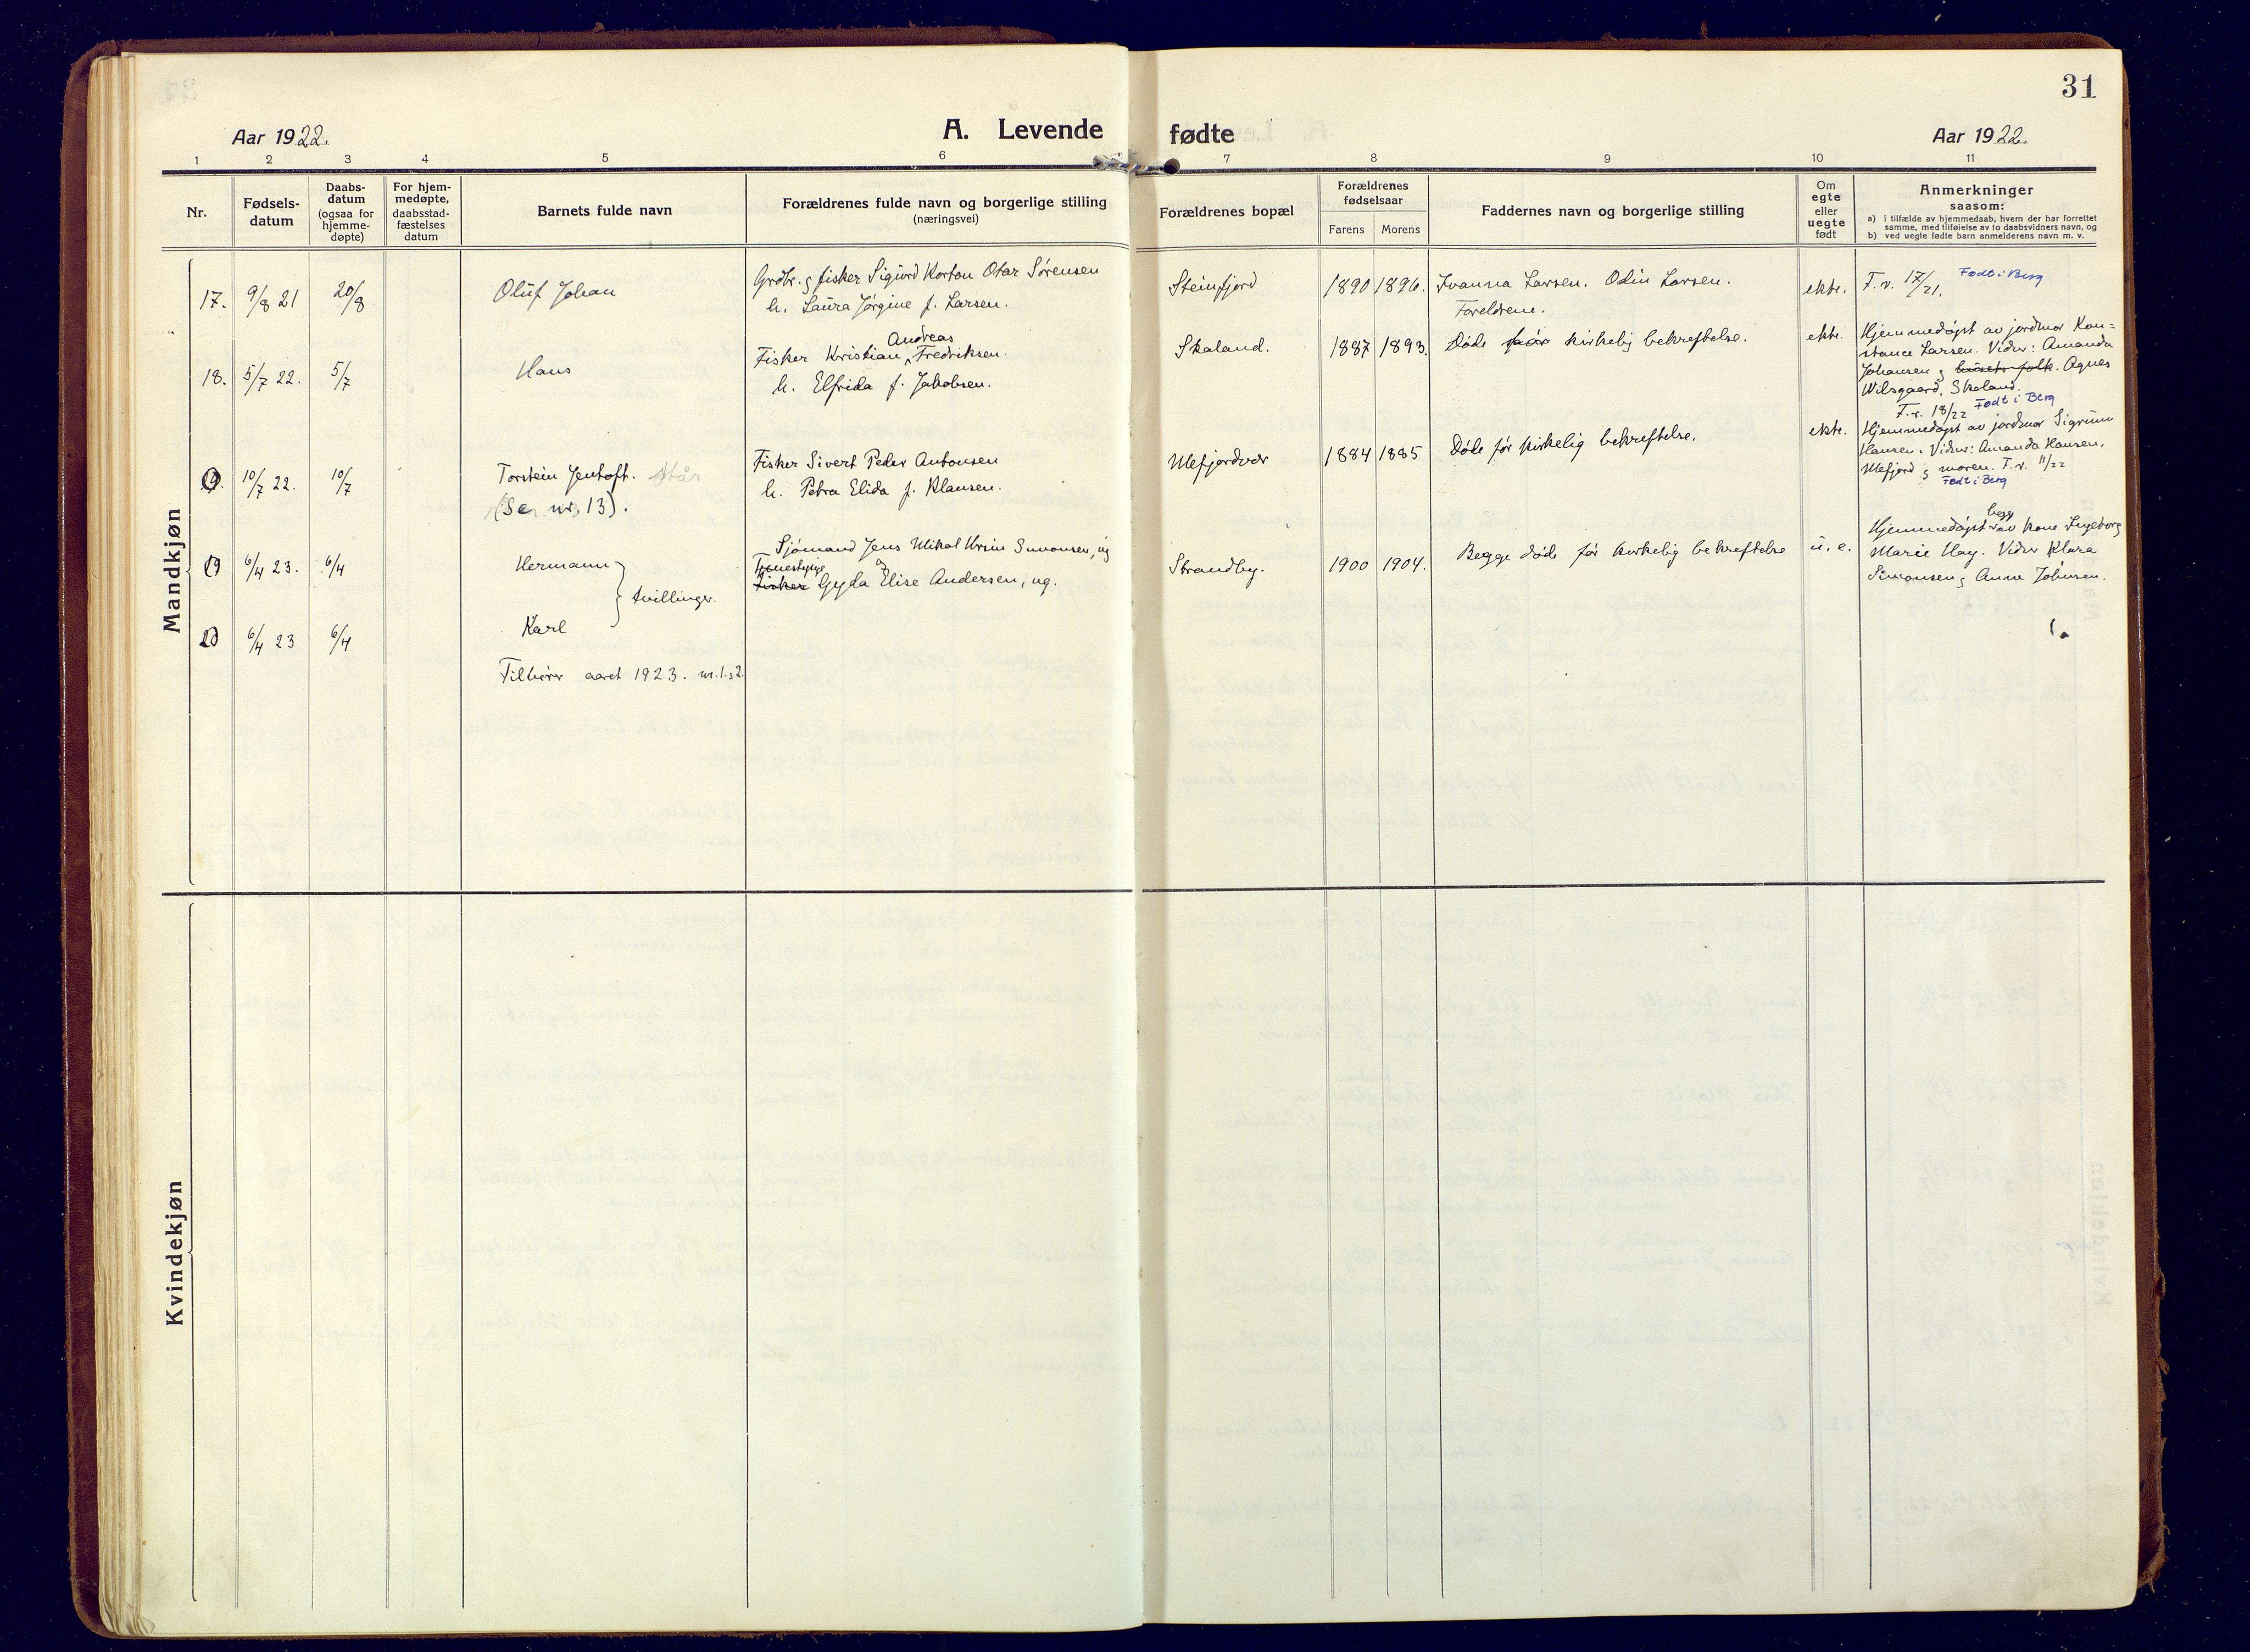 31
Aar 1922.
A. Levende fødte
Aar 1922.
1 2 3 4 5 6 7 8 9 10 11
Nr.
Fødsels-
datum
Daabs-
datum
(ogsaa for
hjemme-
døpte)
For hjem-
medøpte,
daabsstad-
fæstelses
datum
Barnets fulde navn
Forældrenes fulde navn og borgerlige stilling
(næringsvei)
Forældrenes bopæl
Forældrenes
fødselsaar
Farens Morens
Faddernes navn og borgerlige stilling
Om
egte
eller
uegte
født
Anmerkninger
saasom:
a) i tilfælde av hjemmedaab, hvem der har forrettet
samme, med tilføielse av to daabsvidners navn, og
b) ved uegte fødte barn anmelderens navn m. v.
Mandkjøn
17. 9/8 21 20/8
Oluf Johan
Grdbr. g fisker Sigurd Korton Otar Sørensen
h. Laura Jørgine f. Larsen.
Steinfjord
1890 1896.
Ivanna Larsen. Odin Larsen.
Foreldrene.
ekte.
F.r. 17/21. Født i Berg
18. 5/7 22. 5/7
Hans
Andreas
Fisker Kristian Fredriksen.
h. Elfrida f. Jakobsen.
Skaland.
1887 1893.
Døde før kirkelig bekreftelse.
ekte.
Hjemmedøpt av jordmor Kon=
stance Larsen. Vidner: Amanda
Johansen g husets folk. Agnes
Wilsgaard, Skaland.
F.r. 18/22 Født i Berg
19. 10/7 22. 10/7
Torstein Jentoft.
(Se nr. 13).
Fisker Sivert Peder Antonsen
h. Petra Elida f. Klausen.
Mefjordvær
1884 1885
Døde før kirkelig bekreftelse.
ekte.
Hjemmedøpt av jordmor Sigrunn
Hansen. Vidner: Amanda Hansen,
Mefjord g moren. F.r. 11/22
Født i Berg
19 6/4 23. 6/4
Hermann
tvillinger.
Sjømand Jens Mikal Krim Simonsen, ug
Fisker Gyda Elise Andersen, ug.
Strandby.
1900 1904.
Begge døde før kirkelig bekreftelse
u. e.
begg
Hjemmedøpt av kone Ingeborg
Marie Hay. Vidner Klara
Simonsen g Anne Johnsen.
20 6/4 23 6/4
Karl
Tilhører aaret 1923. nr. 1. g 2.
Kvindekjøn